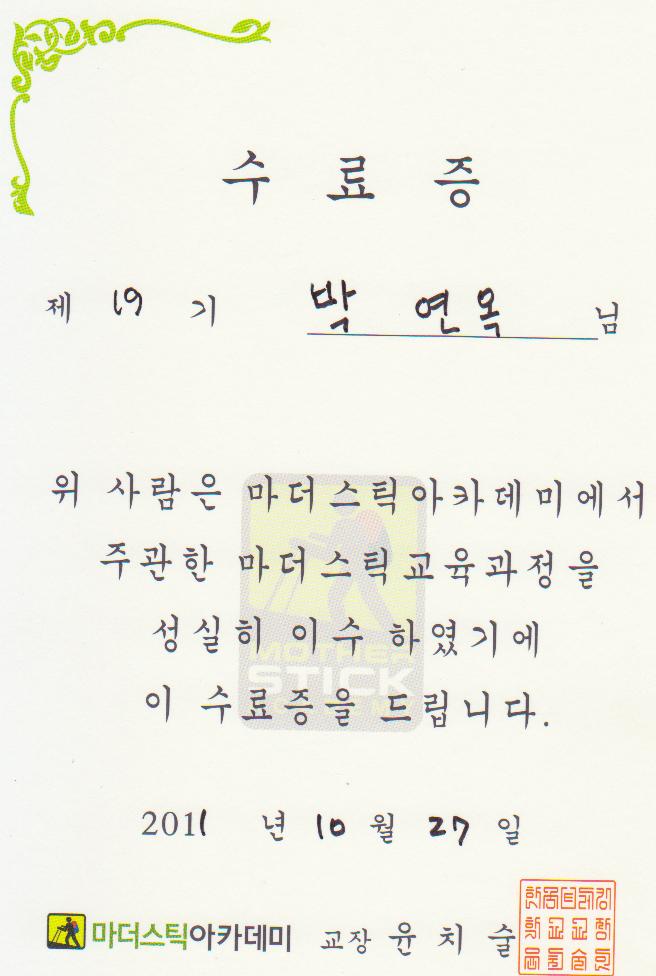 수 료 증
제 19 기 박 연 옥 님
위 사람은 마더스틱아카데미에서
주관한 마더스틱교육과정을
성실히 이수 하였기에
이 수료증을 드립니다.
MOTHER
STICK
2011 년 10 월 27 일
마더스틱아카데미 교장 윤 치 술